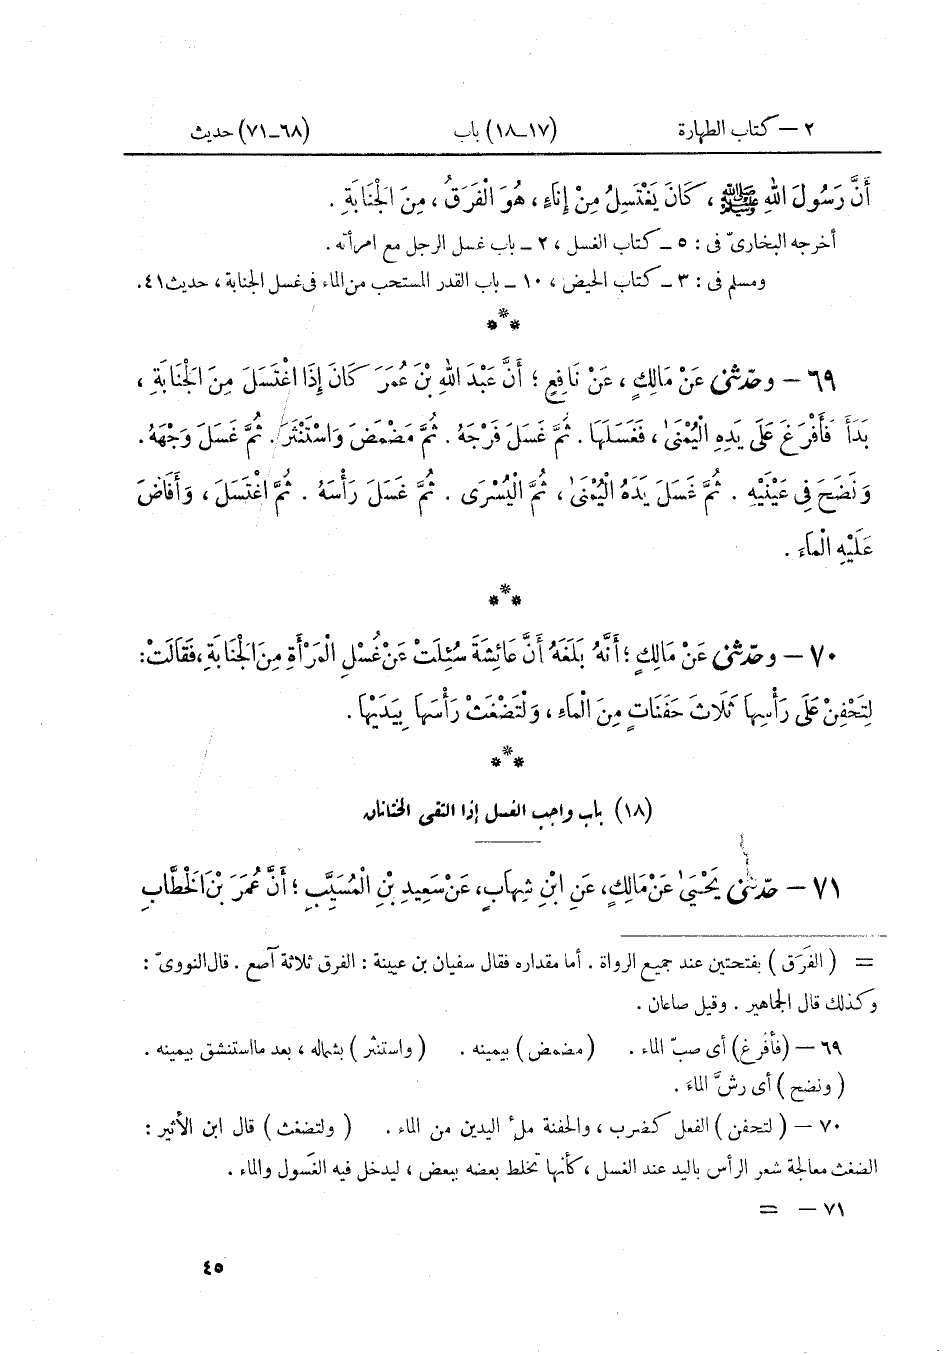 ٢ – كتاب الطهارة (١٧–١٨) باب (٦٨–٧١) حديث
أَنَّ رَسُولَ اللهِ ﷺ ، كَانَ يَغْتَسِلُ مِنْ إِنَاءٍ ، هُوَ الْفَرَقُ ، مِنَ الْجَنَابَةِ .
أخرجه البخارىّ فى : ٥ – كتاب الغسل ، ٢ – باب غسل الرجل مع امرأته .
ومسلم فى : ٣ – كتاب الحيض ، ١٠ – باب القدر المستحب من الماء فى غسل الجنابة ، حديث ٤١ .
***
٦٩ – وحدّثنى عَنْ مَالِكٍ ، عَنْ نَافِعٍ ؛ أَنَّ عَبْدَ اللهِ بْنَ عُمَرَ كَانَ إِذَا اغْتَسَلَ مِنَ الْجَنَابَةِ ،
بَدَأَ فَأَفْرَغَ عَلَى يَدِهِ الْيُمْنَى ، فَغَسَلَهَا . ثُمَّ غَسَلَ فَرْجَهُ . ثُمَّ مَضْمَضَ وَاسْتَنْثَرَ . ثُمَّ غَسَلَ وَجْهَهُ .
وَنَضَحَ فِى عَيْنَيْهِ . ثُمَّ غَسَلَ يَدَهُ الْيُمْنَى ، ثُمَّ الْيُسْرَى . ثُمَّ غَسَلَ رَأْسَهُ . ثُمَّ اغْتَسَلَ ، وَأَفَاضَ
عَلَيْهِ الْمَاءَ .
***
٧٠ – وحدّثنى عَنْ مَالِكٍ ؛ أَنَّهُ بَلَغَهُ أَنَّ عَائِشَةَ سُئِلَتْ عَنْ غُسْلِ الْمَرْأَةِ مِنَ الْجَنَابَةِ ، فَقَالَتْ :
لِتَحْفِنْ عَلَى رَأْسِهَا ثَلَاثَ حَفَنَاتٍ مِنَ الْمَاءِ ، وَلْتَضْغَثْ رَأْسَهَا بِيَدَيْهَا .
***
(١٨) باب واجب الغسل إذا التقى الختانان
٧١ – حدّثنى يَحْيَى عَنْ مَالِكٍ ، عَنِ ابْنِ شِهَابٍ ، عَنْ سَعِيدِ بْنِ الْمُسَيَّبِ ؛ أَنَّ عُمَرَ بْنَ الْخَطَّابِ
= ( الفَرَق ) بفتحتين عند جميع الرواة . أما مقداره فقال سفيان بن عيينة : الفرق ثلاثة آصع . قال النووىّ :
وكذلك قال الجماهير . وقيل صاعان .
٦٩ – (فأفرغ) أى صبّ الماء . (مضمض) بيمينه . ( واستنثر ) بشماله ، بعد ما استنشق بيمينه .
( ونضح ) أى رشّ الماء .
٧٠ – ( لتحفن ) الفعل كضرب ، والحفنة ملأ اليدين من الماء . ( ولتضغث ) قال ابن الأثير :
الضغث معالجة شعر الرأس باليد عند الغسل ، كأنها تخلط بعضه ببعض ، ليدخل فيه الغَسول والماء .
٧١ – =
٤٥